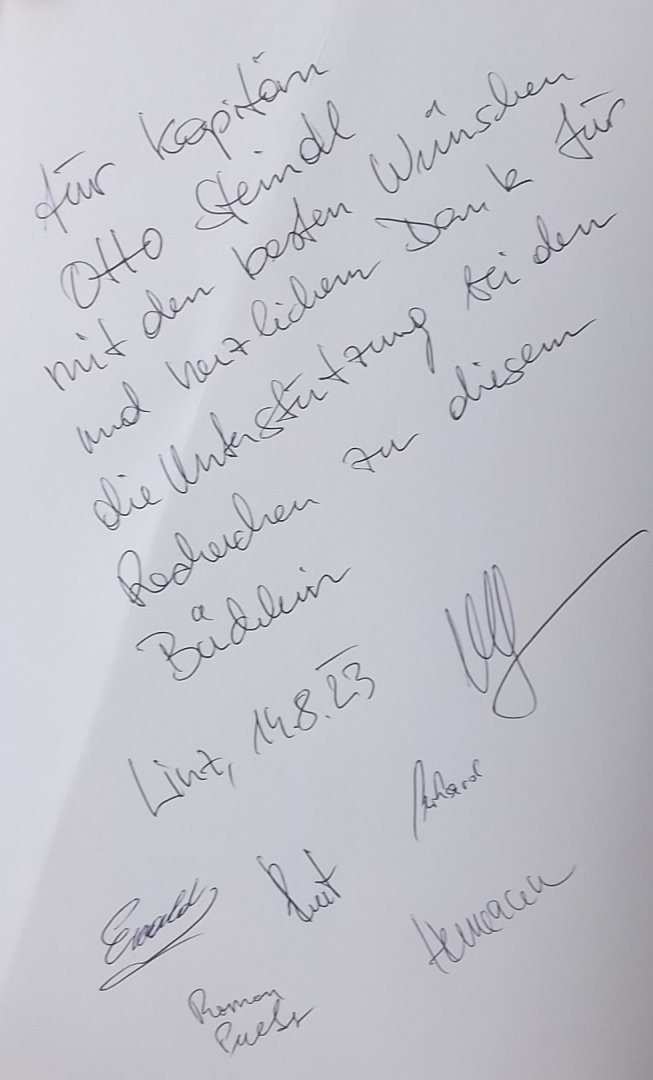 für Kapitän
Otto Steindl
mit den besten Wünschen
und herzlichem Dank für
die Unterstützung bei den
Recherchen zu diesem
Büchlein
Linz, 14.8.23
Ewald
Roman